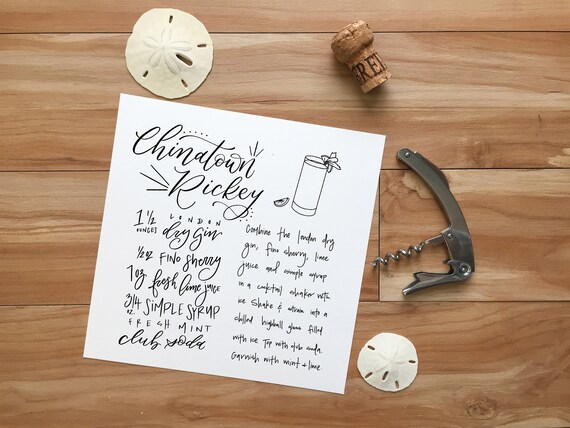 Chinatown
Rickey
1 1/2 LONDON
OUNCES dry gin
1/2 oz FINO Sherry
1 oz fresh lime juice
3/4 oz. SIMPLE SYRUP
FRESH MINT
club soda
Combine the london dry
gin, fino sherry, lime
juice and simple syrup
in a cocktail shaker with
ice Shake & strain into a
chilled highball glass filled
with ice Top with club soda.
Garnish with mint + lime